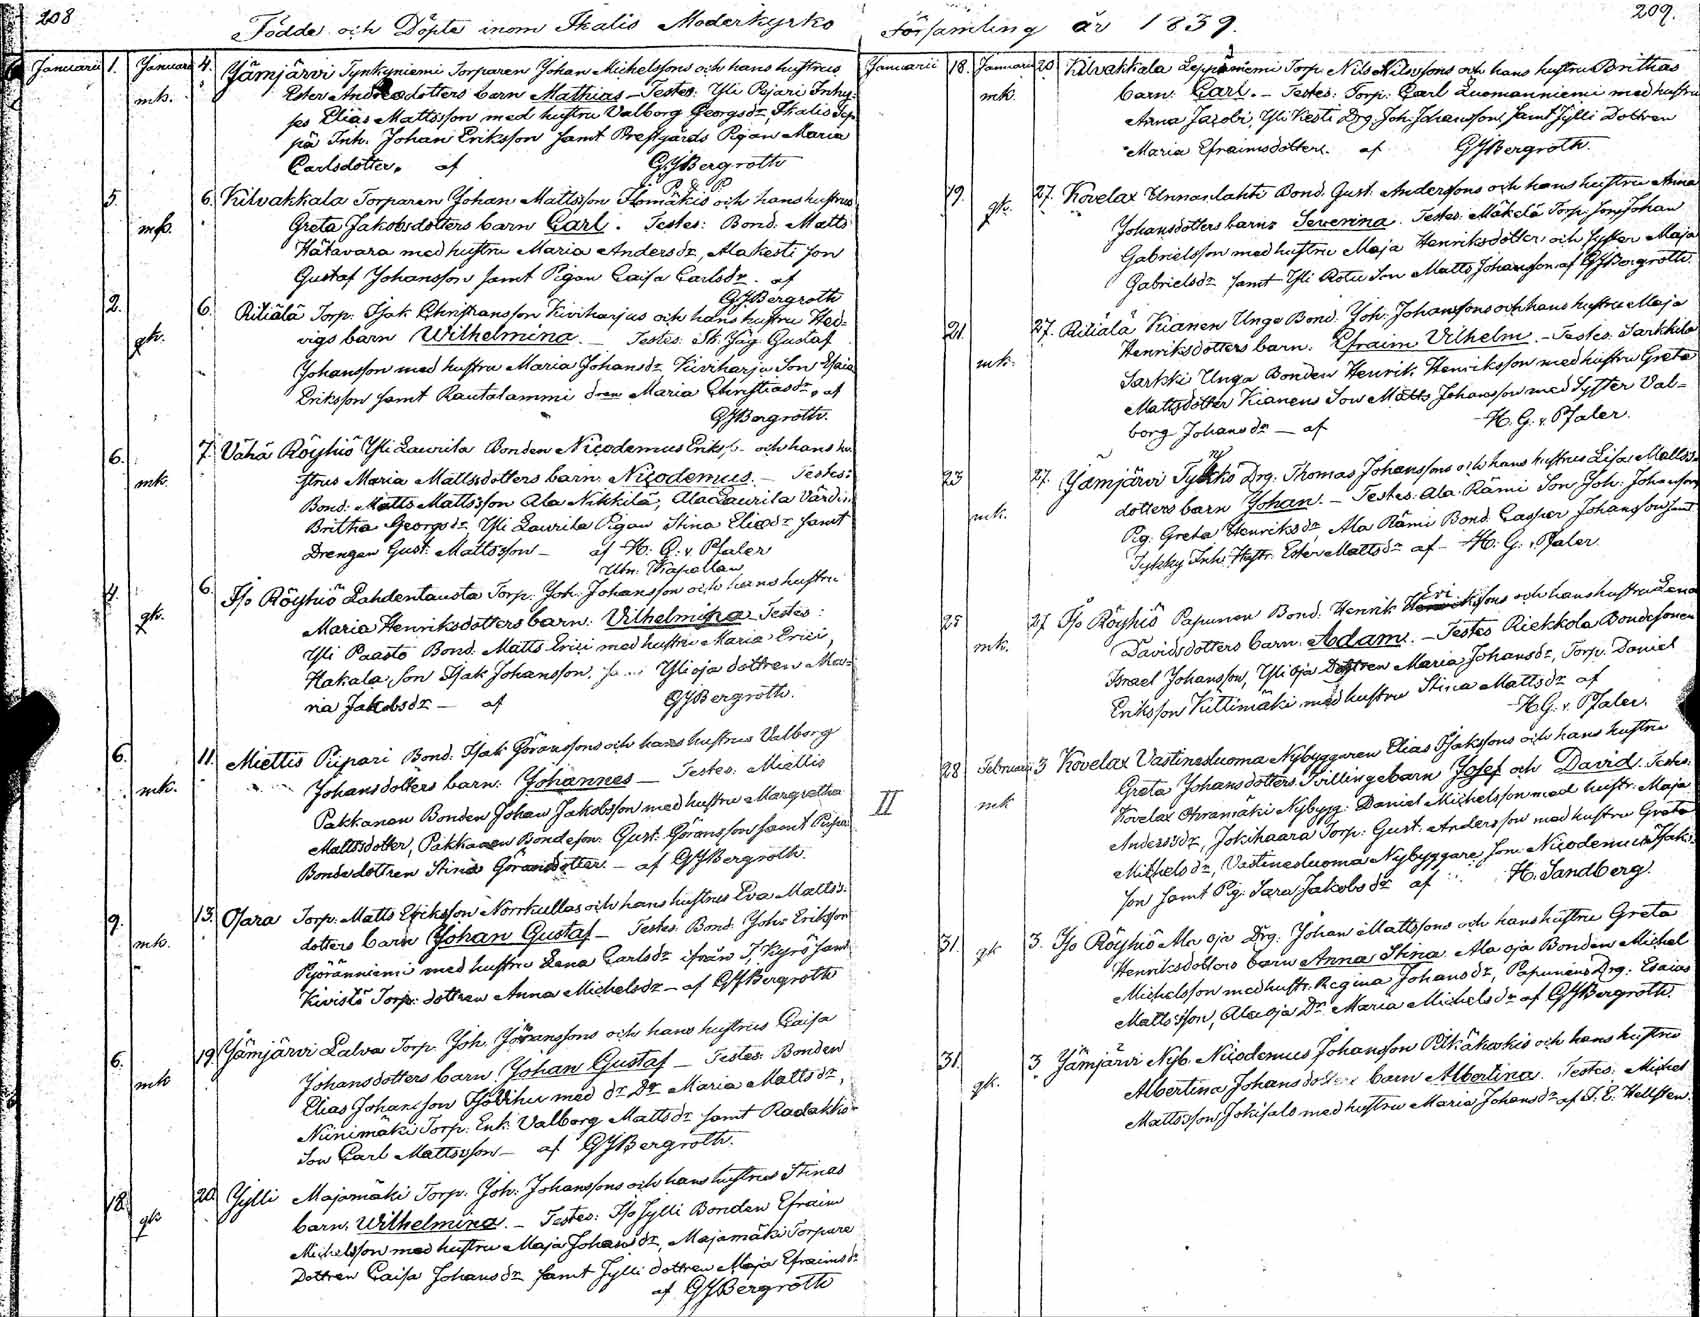 208
Födde och Döpte inom Ikalis Moderkyrko
Januarii 1. Januarii 4. Jämjärvi Tynkyniemi Torparen Johan Michelssons och hans hustrus
mk. Ester Andersdotters barn Mathias - Testes: Yli Rejari Inhy-
ses Elias Mattsson med hustru Valborg Georgsdr, Ikalis Sep
pä Inh. Johan Eriksson samt Prestgårds Pigan Maria
Carlsdotter. af GJBergroth
5. 6. Kilvakkala Torparen Johan Mattsson Homäkis och hans hustrus
mk. Greta Jakobsdotters barn Carl. Testes: Bond. Matts
Hätävara med hustru Maria Andersdr, Alakesti Son
Gustaf Johansson samt Pigan Caisa Carlsdr. af
GJBergroth
2. 6. Riitiälä Torp. Isak Christiansson Kiviharjus och hans hustru Hed-
gk. vigs barn Wilhelmina. - Testes: St. Jäg. Gustaf
Johansson med hustru Maria Johansdr Kiviharju Son Esaia
Eriksson samt Rautalammi dren Maria Christiasdr, af
GJBergroth.
6. 7. Vähä Röyhiö Yli Laurila Bonden Nicodemus Erikss. och hans hu-
mk. strus Maria Mattsdotters barn: Nicodemus. - Testes:
Bond: Matts Mattsson Ala Nikkilä, Ala Laurila Värdin
Britha Georgsdr, Yli Laurila Pigan Stina Eliedr samt
Drengen Gust: Mattsson - af H. G. v. Pfaler
Utn. Kapellan
4. 6. Iso Röyhiö Lahdentausta Torp: Joh: Johansson och hans hustru
gk. Maria Henriksdotters barn: Vilhelmina Testes:
Yli Paasto Bond. Matts Erici med hustru Maria Erici,
Hakala Son Isak Johansson, Ylioja dottren Ma-
ria Jakobsdr - af GJBergroth.
6. 11. Miettis Piipari Bond. Isak Göranssons och hans hustrus Valborg
mk. Johansdotters barn: Johannes - Testes: Miettis
Pakkanen Bonden Johan Jakobsson med hustru Margretha
Mattsdotter, Pakkanen Bondeson: Gust: Göransson samt Piipa
Bondedottren Stina Göransdotter - af GJBergroth.
9. 13. Osara Torp: Matts Eriksson Norrkullas och hans hustrus Eva Matts-
mk. dotters barn Johan Gustaf - Testes: Bond: Joh: Eriksson
Pyöränniemi med hustru Lena Carlsdr ifrån T. Kyro samt
Kivistö Torp: dottren Anna Michelsdr - af GJBergroth
6. 19. Jämjärvi Lalva Torp. Joh. Göranssons och hans hustrus Caisa
mk Johansdotters barn. Johan Gustaf - Testes: Bonden
Elias Johansson med dr Dr Maria Mattsdr,
Niinimäki Torp. Enk. Valborg Mattsdr samt Radakko-
Son Carl Mattsson - af GJBergroth.
18. 20. Jylli Majamäki Torp: Joh: Johanssons och hans hustrus Stinas
gk barn. Wilhelmina. - Testes: Iso Jylli Bonden Efraim
Michelsson med hustru Maja Johansdr, Majamäki Torpare
Dottren Caisa Johansdr samt Jylli dottren Maja Efraimsdr
af GJBergroth
209.
församling år 1839.
Januarii 18. Januarii 20 Kilvakkala Leppäniemi Torp. Nils Nilssons och hans hustru Brithas
mk. barn: Carl. - Testes: Torp: Carl Luomanniemi med hustru
Anna Jacobi, Yli Kesti Drg. Joh. Johansson, samt Jylli Dottren
Maria Efraimsdotter. af GJBergroth.
19. 27. Kovelax Unnanlahti Bond. Gust. Anderssons och hans hustru Anna
gk. Johansdotters barn: Severina. Testes: Mäkelä Torp. Son Johan
Gabrielsson med hustru Maja Henriksdotter och syster Maja
Gabrielsdr samt Yli Rotu Son Matts Johansson af GJBergroth.
21. 27. Riitiälä Kianen Unge Bond. Joh: Johanssons och hans hustru Maja
mk. Henriksdotters barn: Efraim Vilhelm. - Testes: Sarkkila
Sarkki Unga Bonden Henrik Henriksson med hustru Greta
Mattsdotter Kianens Son Matts Johansson med Syster Val-
borg Johansdr - af H. G. v. Pfaler.
23 27. Jämjärvi Tykkö Drg: Thomas Johanssons och hans hustrus Lisa Matts-
mk. dotters barn Johan. - Testes: Ala Rämi Son Joh: Johansson
Pig. Greta Henriksdr, Ala Rämi Bond Casper Johansson samt
Tykky Inh. Hustr. Ester Mattsdr af - H. G. v. Pfaler.
25 27 Iso Röyhiö Papunen Bond: Henrik Erikssons och hans hustru Lena
mk. Davidsdotters barn: Adam. - Testes Riekkola Bondesonen
Israel Johansson, Yli Oja Dottren Maria Johansdr, Torp. Daniel
Eriksson Kuttimäki med hustru Stina Mattsdr af
H. G. v. Pfaler.
28 Februarii 3 Kovelax Vastinesluoma Nybyggaren Elias Isakssons och hans hustru
II mk Greta Johansdotters Tvillingebarn Josef och David. Testes:
Kovelax Ohramäki Nybygg: Daniel Michelsson med hustr. Maja
Andersdr, Jokihaara Torp. Gust. Andersson med hustru Greta
Michelsdr, Vastinesluoma Nybyggare Son Nicodemus Isaks-
son samt Pig. Sara Jakobsdr af H. Sandberg.
31. 3. Iso Röyhiö Ala oja Drg. Johan Mattssons och hans hustru Greta
gk Henriksdotters barn Anna Stina. Ala oja Bonden Michel
Michelsson med hustr. Regina Johansdr, Papunens Drg: Esaias
Mattsson, Ala oja Dr Maria Michelsdr af GJBergroth.
31. 3 Jämjärvi Nyb. Nicodemus Johansson Pitkäkoskis och hans hustru
gk. Albertina Johansdotters barn Albertina. Testes: Michel
Mattsson Jokisalo med hustru Maria Johansdr af T. E. Hellsten.